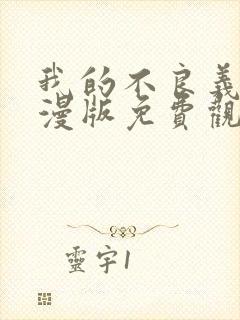 我的不良義
漫版免費觀
靈宇1